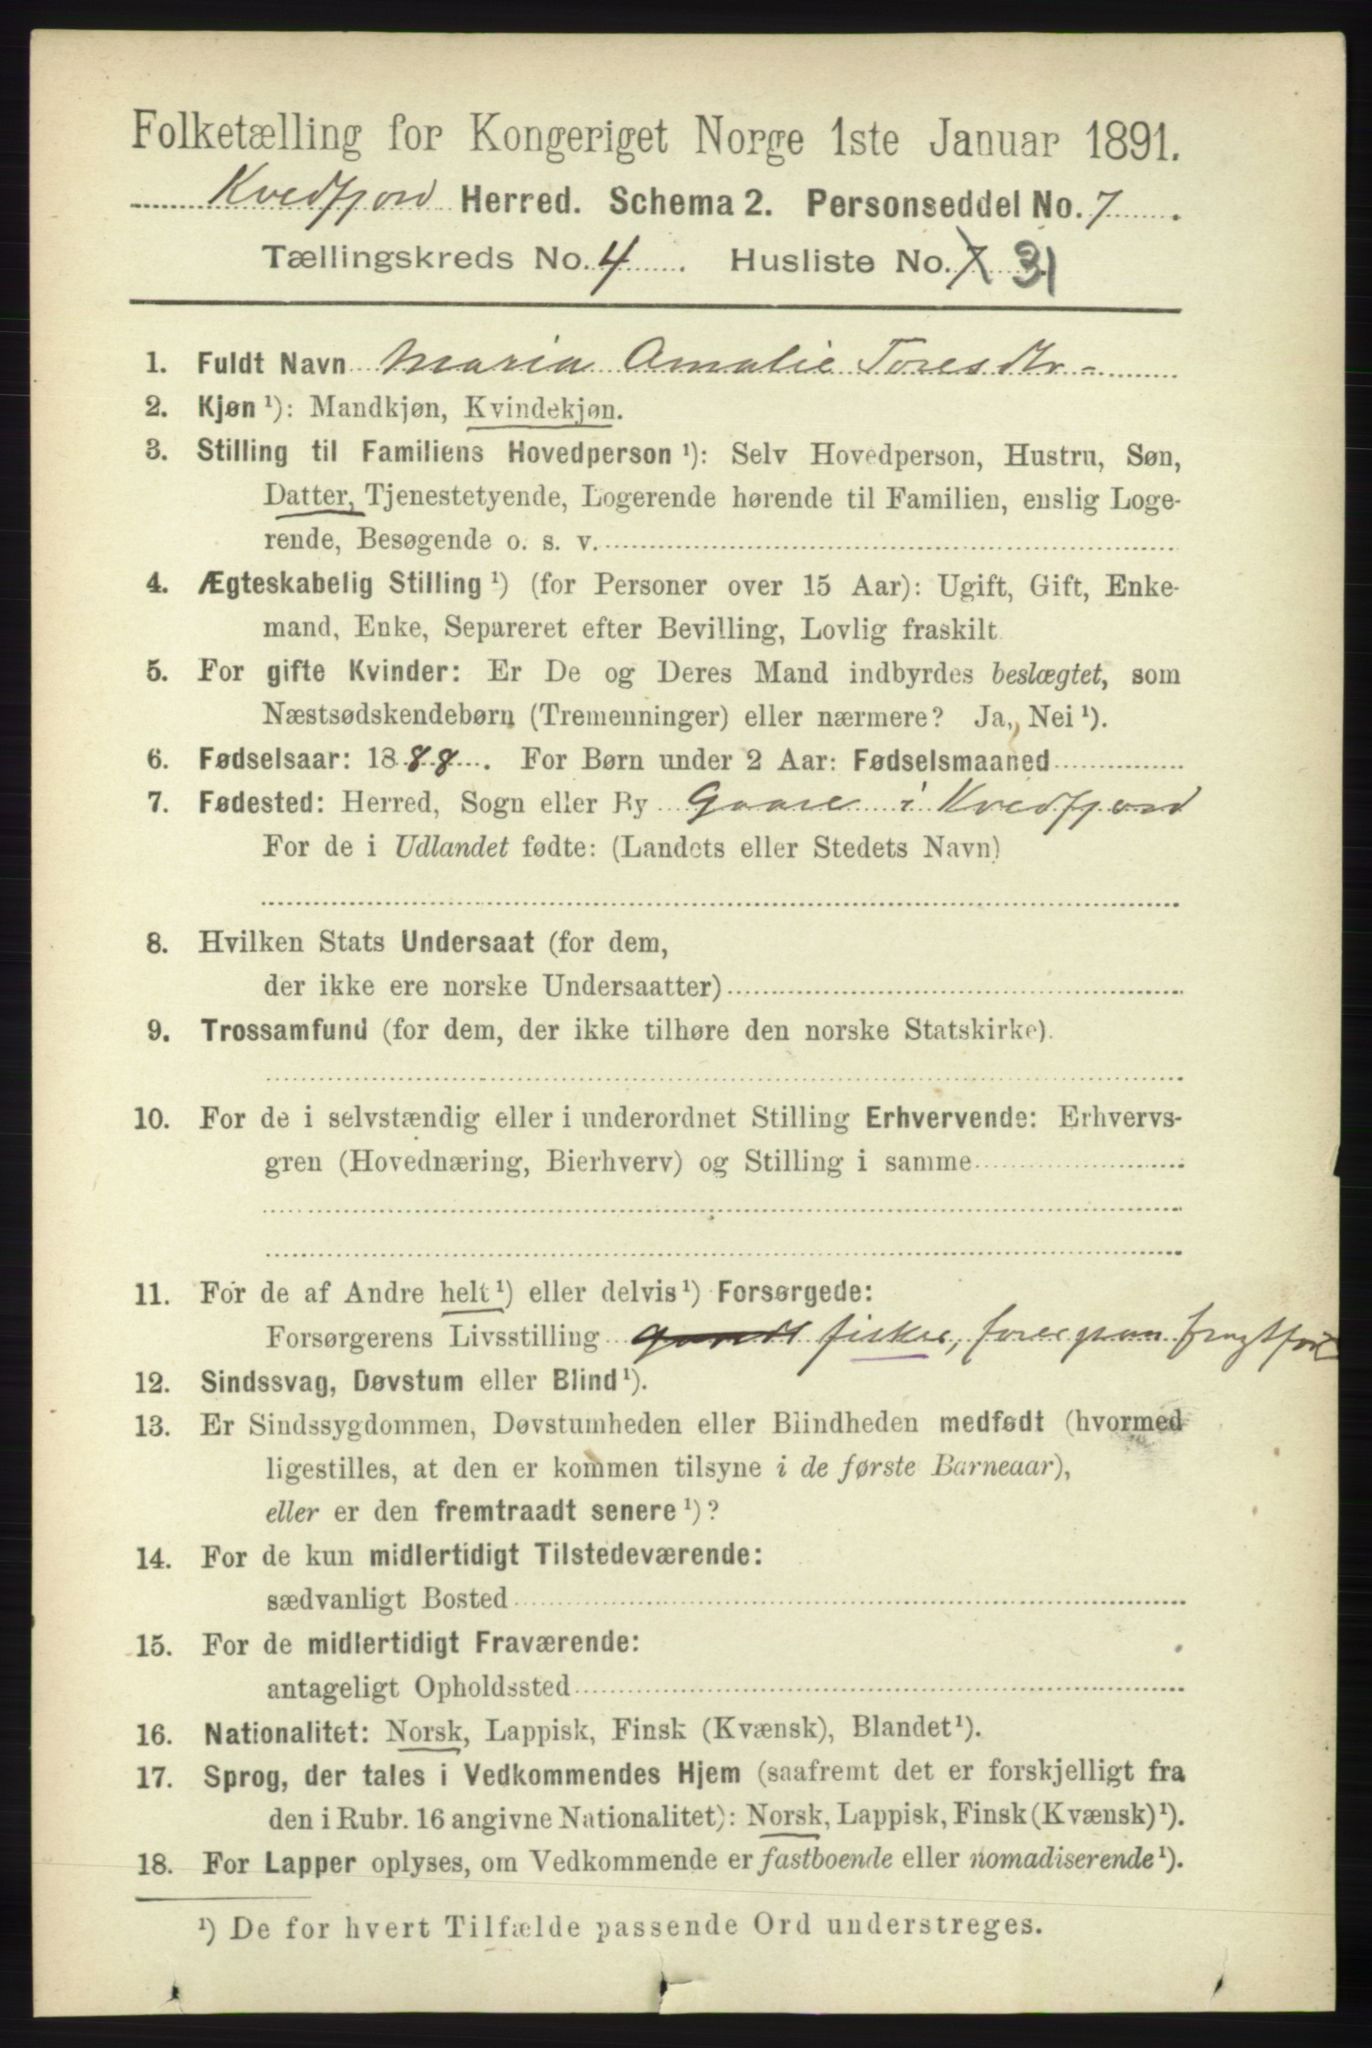 Folketælling for Kongeriget Norge 1ste Januar 1891.
Kvedfjord Herred. Schema 2. Personseddel No. 7.
Tællingskreds No. 4. Husliste No. 7 31
1. Fuldt Navn Maria Amalie Toresdtr
2. Kjøn ¹): Mandkjøn, Kvindekjøn.
3. Stilling til Familiens Hovedperson ¹): Selv Hovedperson, Hustru, Søn,
Datter, Tjenestetyende, Logerende hørende til Familien, enslig Loge-
rende, Besøgende o. s. v.
4. Ægteskabelig Stilling ¹) (for Personer over 15 Aar): Ugift, Gift, Enke-
mand, Enke, Separeret efter Bevilling, Lovlig fraskilt
5. For gifte Kvinder: Er De og Deres Mand indbyrdes beslægtet, som
Næstsødskendebørn (Tremenninger) eller nærmere? Ja, Nei ¹).
6. Fødselsaar: 1888. For Børn under 2 Aar: Fødselsmaaned
7. Fødested: Herred, Sogn eller By Gaare i Kvedfjord
For de i Udlandet fødte: (Landets eller Stedets Navn)
8. Hvilken Stats Undersaat (for dem,
der ikke ere norske Undersaatter)
9. Trossamfund (for dem, der ikke tilhøre den norske Statskirke).
10. For de i selvstændig eller i underordnet Stilling Erhvervende: Erhvervs-
gren (Hovednæring, Bierhverv) og Stilling i samme
11. For de af Andre helt ¹) eller delvis ¹) Forsørgede:
Forsørgerens Livsstilling fisker,
12. Sindssvag, Døvstum eller Blind ¹).
13. Er Sindssygdommen, Døvstumheden eller Blindheden medfødt (hvormed
ligestilles, at den er kommen tilsyne i de første Barneaar),
eller er den fremtraadt senere ¹)?
14. For de kun midlertidigt Tilstedeværende:
sædvanligt Bosted
15. For de midlertidigt Fraværende:
antageligt Opholdssted
16. Nationalitet: Norsk, Lappisk, Finsk (Kvænsk), Blandet ¹).
17. Sprog, der tales i Vedkommendes Hjem (saafremt det er forskjelligt fra
den i Rubr. 16 angivne Nationalitet): Norsk, Lappisk, Finsk (Kvænsk) ¹).
18. For Lapper oplyses, om Vedkommende er fastboende eller nomadiserende ¹).
¹) De for hvert Tilfælde passende Ord understreges.